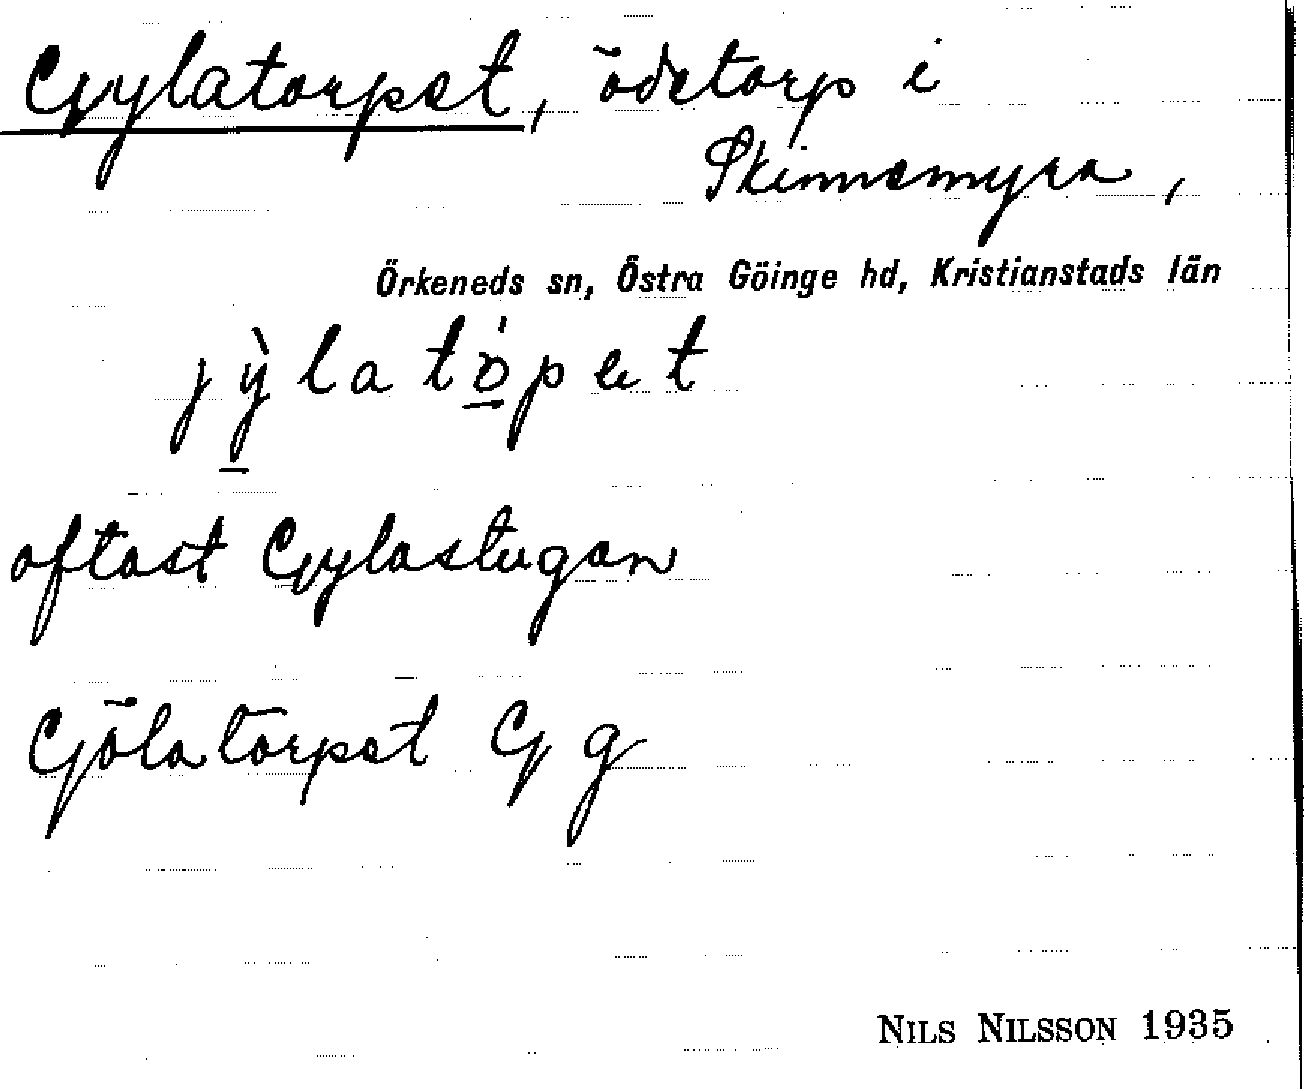 Gylatorpet, ödetorp i
Skinnemyra,
Örkeneds sn, Östra Göinge hd, Kristianstads län
jỳlatòpet
oftast Gylastugan
Gjölatorpet G g
NILS NILSSON 1935